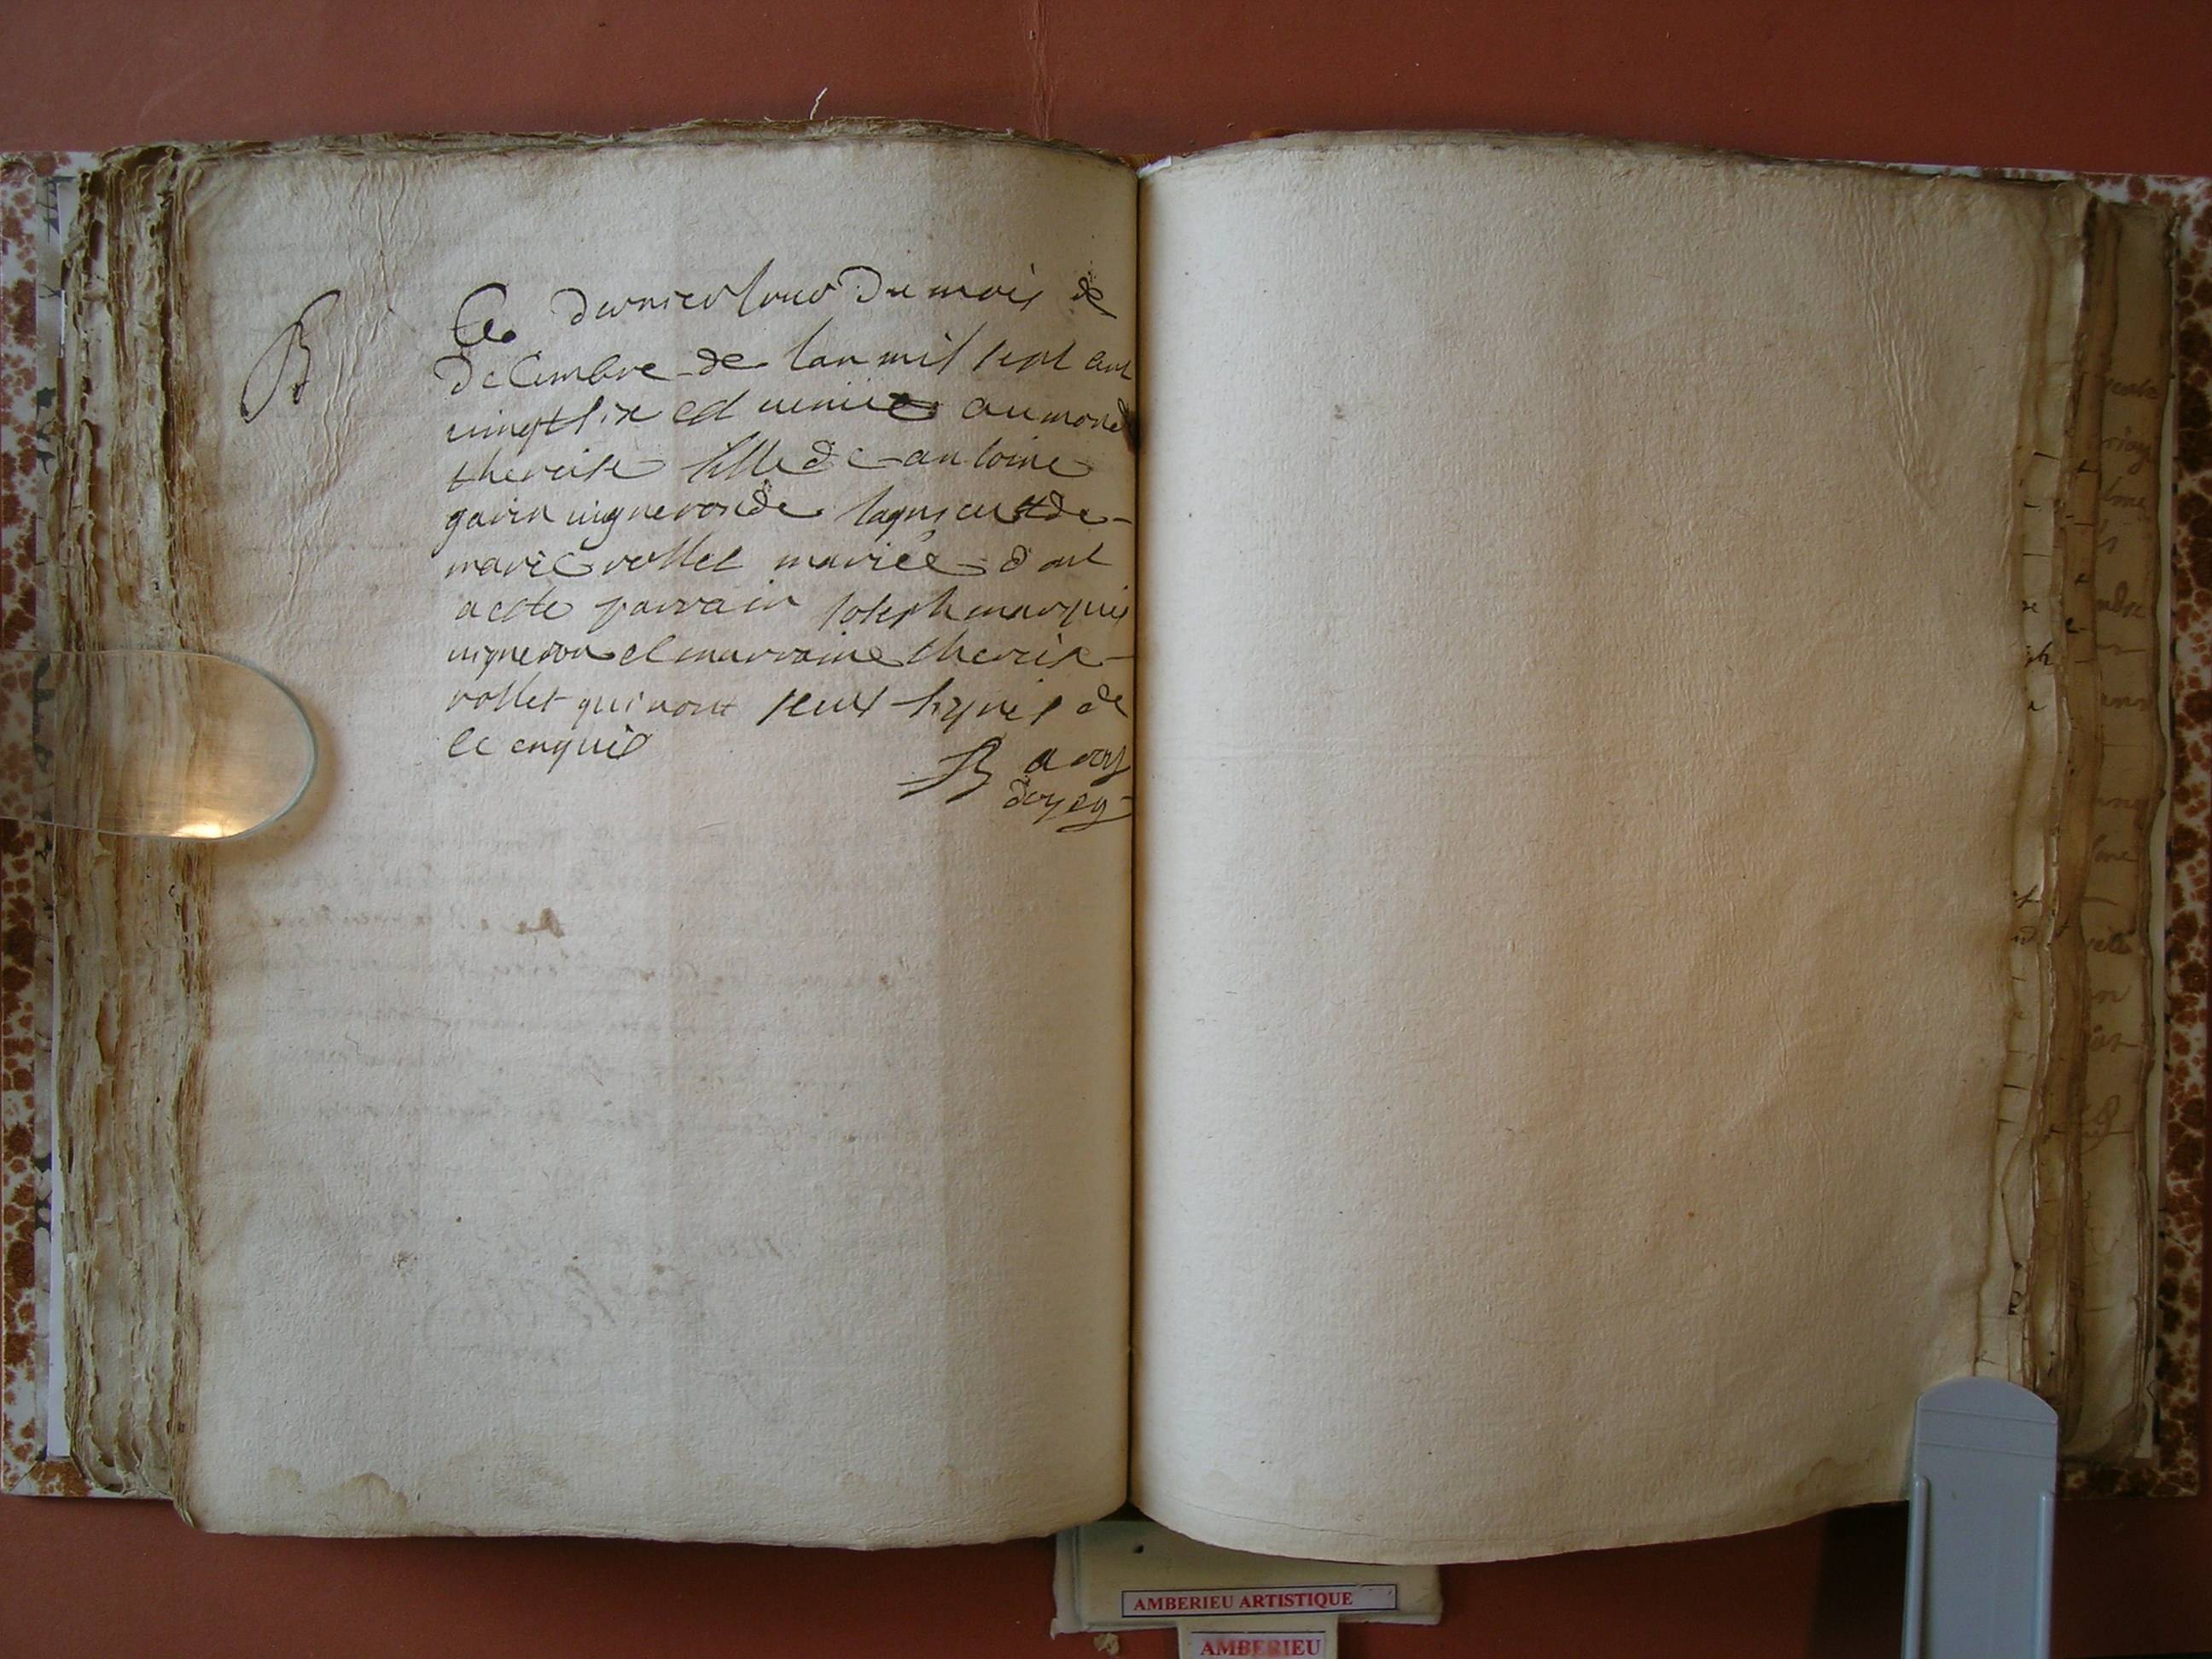 B
Ce dernier jour du mois de
decembre de lan mil sept cent
vingt six est venue au monde
thereise fille de antoine
gavin vigneron de lagnieu et de
marie rollet mariée dont
acte parrain joseph marquis
vigneron et marraine thereise
rollet qui nont sceus signés de
ce enquis
doyen
AMBERIEU ARTISTIQUE
AMBERIEU